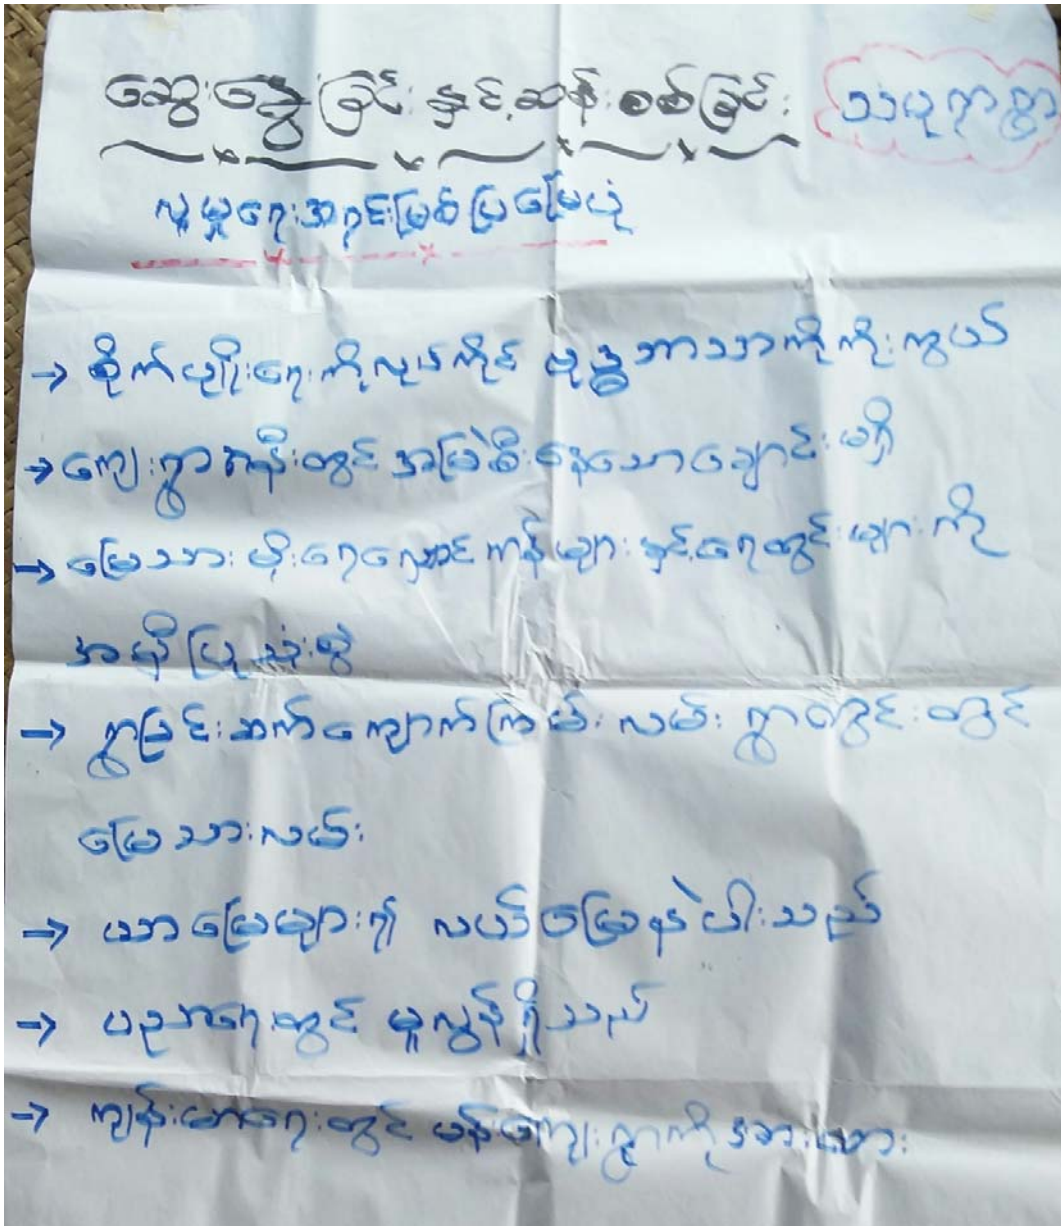 ဆွေးနွေးခြင်းနှင့်ဆန်းစစ်ခြင်း
သပုရာရွာ
လူမှုရေးအရင်းမြစ်ပြမြေပုံ
→ စိုက်ပျိုးရေးကိုလုပ်ကိုင် ဗုဒ္ဓဘာသာကိုကိုးကွယ်
→ ကျေးရွာအနီးတွင် အမြဲစီးနေသောချောင်းမရှိ
→ မြေသားမိုးရေလှောင်ကန်များနှင့်ရေတွင်းများကို
အမှီပြုသုံးစွဲ
→ ရွာခြင်းဆက်ကျောက်ကြမ်းလမ်း ရွာတွင်းတွင်
မြေသားလမ်း
→ ယာမြေများ၍ လယ်မြေနဲပါးသည်
→ ပညာရေးတွင် မူလွန်ရှိသည်
→ ကျန်းမာရေးတွင် မန်ကျေးရွာကိုအားထား